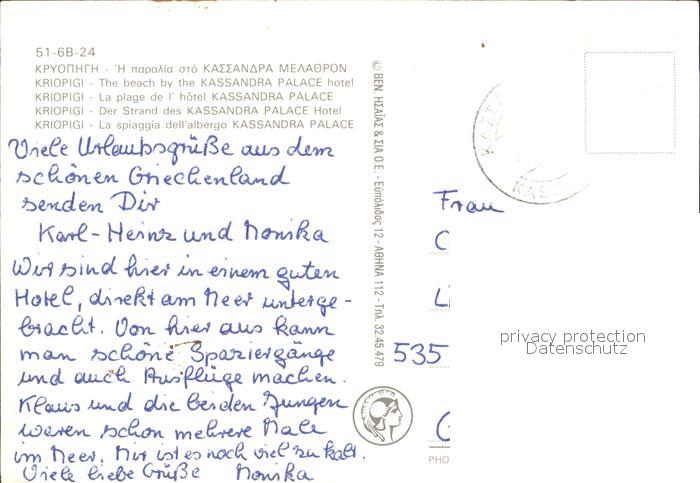 51-6B-24
ΚΡΥΟΠΗΓΗ - Ἡ παραλία στό ΚΑΣΣΑΝΔΡΑ ΜΕΛΑΘΡΟΝ
KRIOPIGI - The beach by the KASSANDRA PALACE hotel
KRIOPIGI - La plage de l' hôtel KASSANDRA PALACE
KRIOPIGI - Der Strand des KASSANDRA PALACE Hotel
KRIOPIGI - La spiaggia dell'albergo KASSANDRA PALACE
Viele Urlaubsgrüße aus dem
schönen Griechenland
senden Dir
Karl-Heinz und Monika
Wir sind hier in einem guten
Hotel, direkt am Meer unterge-
bracht. Von hier aus kann
man schöne Spaziergänge
und auch Ausflüge machen.
Klaus und die beiden Jungen
waren schon mehrere Male
im Meer. Mir ist es noch viel zu kalt.
Viele liebe Grüße Monika
© ΒΕΝ. ΗΣΑΪΑΣ & ΣΙΑ Ο.Ε. - Εὐπόλιδος 12 - ΑΘΗΝΑ 112 - Τηλ. 32.45.479
ΚΑΣΣ
KASS
Frau
C
L
535
G
privacy protection
Datenschutz
PHO